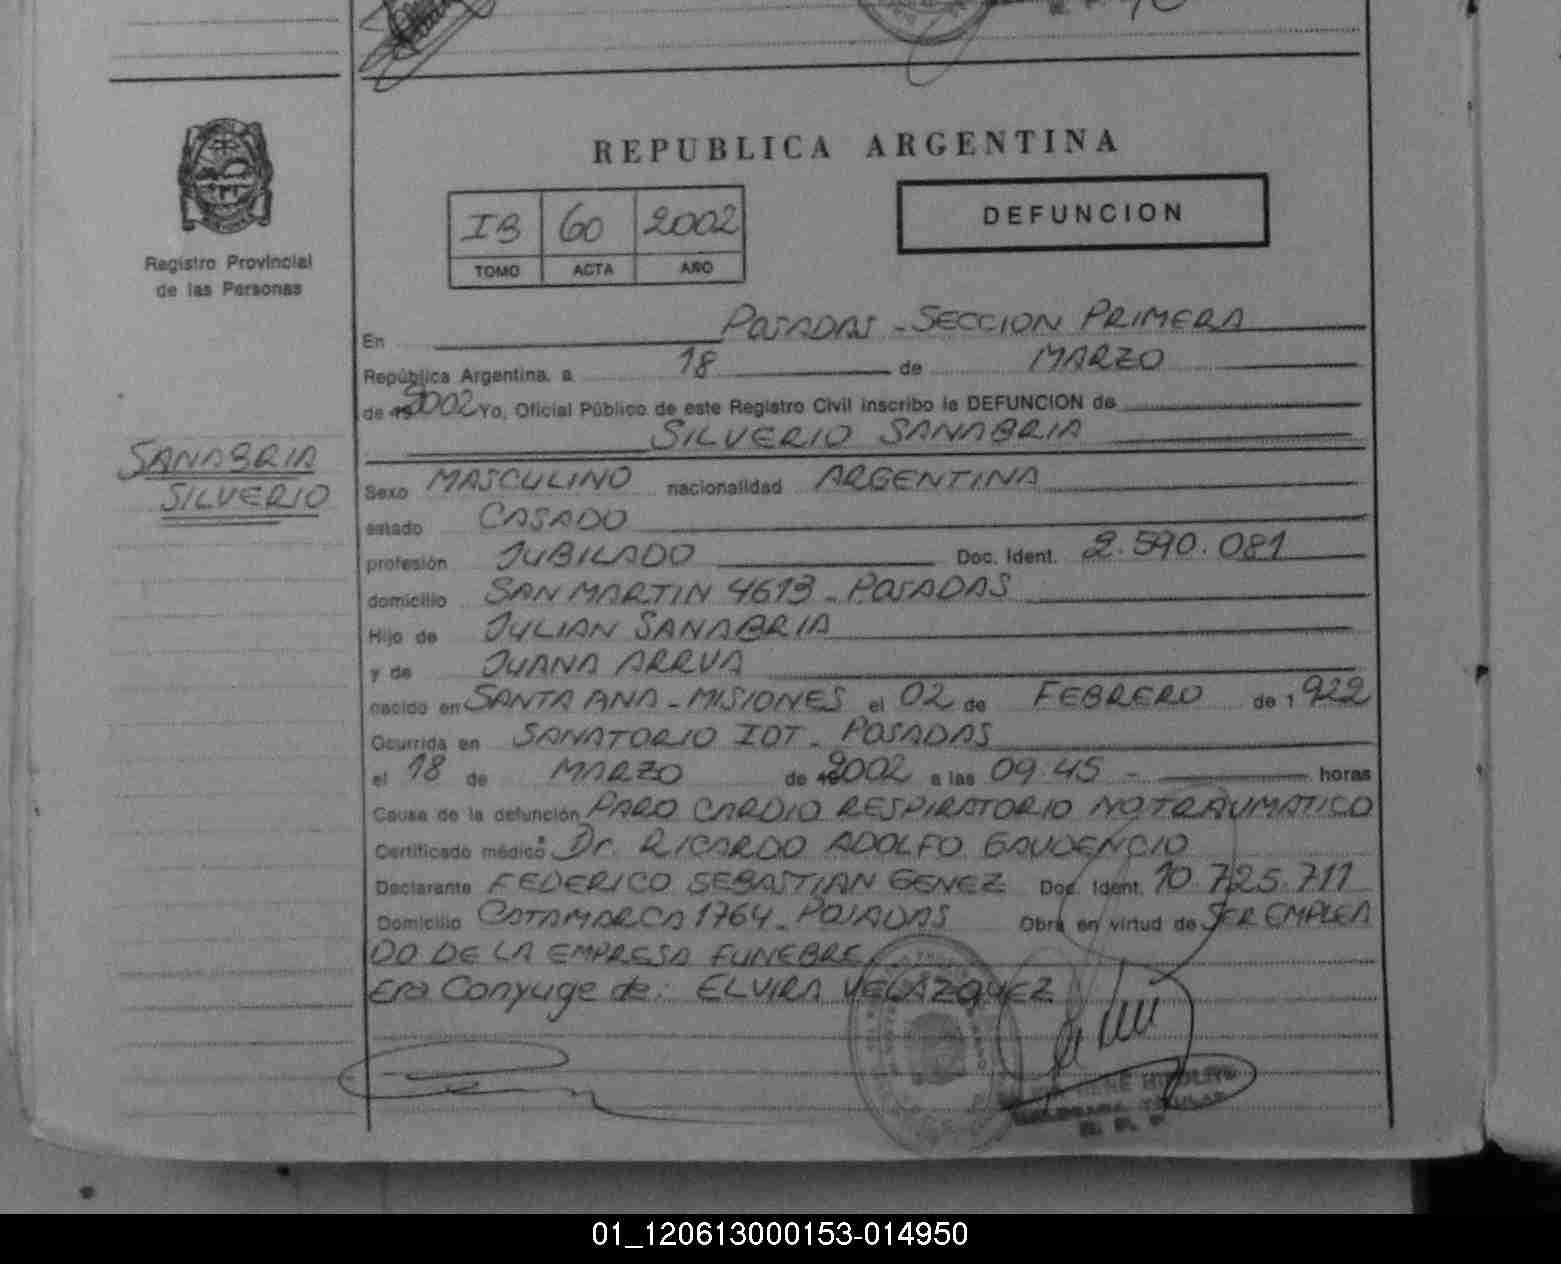 REPUBLICA ARGENTINA
IB 60 2002
TOMO ACTA AÑO
DEFUNCION
Registro Provincial
de las Personas
SANABRIA
SILVERIO
En POSADAS - SECCION PRIMERA
República Argentina, a 18 de MARZO
de 2002 Yo, Oficial Público de este Registro Civil inscribo la DEFUNCION de
SILVERIO SANABRIA
Sexo MASCULINO nacionalidad ARGENTINA
estado CASADO
profesión JUBILADO Doc. Ident. 2.590.081
domicilio SAN MARTIN 4613 - POSADAS
Hijo de JULIAN SANABRIA
y de JUANA ARRUA
nacido en SANTA ANA - MISIONES el 02 de FEBRERO de 1922
Ocurrida en SANATORIO IOT - POSADAS
el 18 de MARZO de 2002 a las 09.45 - horas
Causa de la defunción PARO CARDIO RESPIRATORIO NO TRAUMATICO
Certificado médico: Dr. RICARDO ADOLFO GAUDENCIO
Declarante FEDERICO SEBASTIAN GENEZ Doc. Ident. 10.725.711
Domicilio CATAMARCA 1764 - POSADAS Obra en virtud de SER EMPLEA
DO DE LA EMPRESA FUNEBRE
Era Conyuge de: ELVIRA VELAZQUEZ
01_120613000153-014950